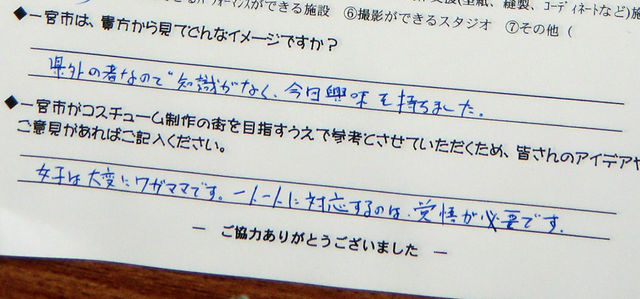 パフォーマンスができる施設 ⑥撮影ができるスタジオ ⑦その他(
縫製、コーディネートなど)施
◆一宮市は、貴方から見てどんなイメージですか?
県外の者なので知識がなく、今日興味を持ちました。
◆一宮市がコスチューム制作の街を目指すうえで参考とさせていただくため、皆さんのアイデアや
ご意見があればご記入ください。
女子は大変にワガママです。一人一人に対応するのは、覚悟が必要です。
― ご協力ありがとうございました ―